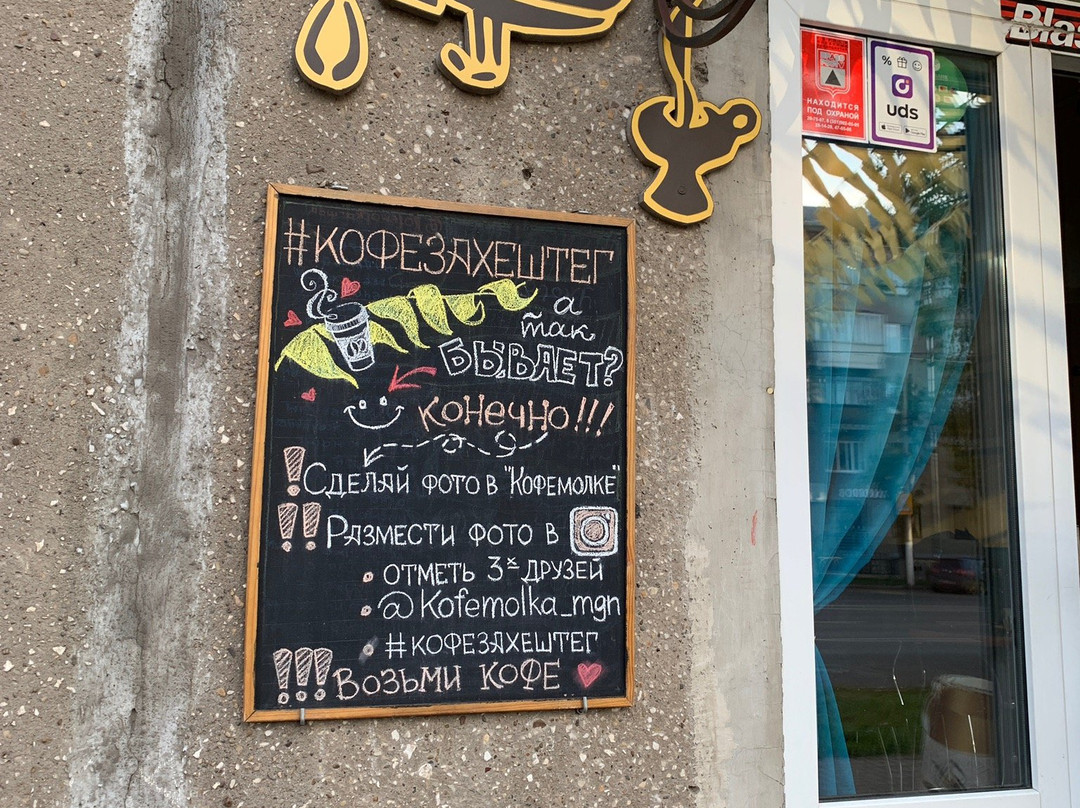 #КОФЕЗАХЕШТЕГ
а
так
БЫВАЕТ?
КОНЕЧНО!!!
! СДЕЛАЙ ФОТО В "КОФЕМОЛКЕ"
!! РАЗМЕСТИ ФОТО В
• ОТМЕТЬ 3х ДРУЗЕЙ
• @Kofemolka_mgn
• #КОФЕЗАХЕШТЕГ
!!! ВОЗЬМИ КОФЕ
НАХОДИТСЯ
ПОД ОХРАНОЙ
%
uds
Blas